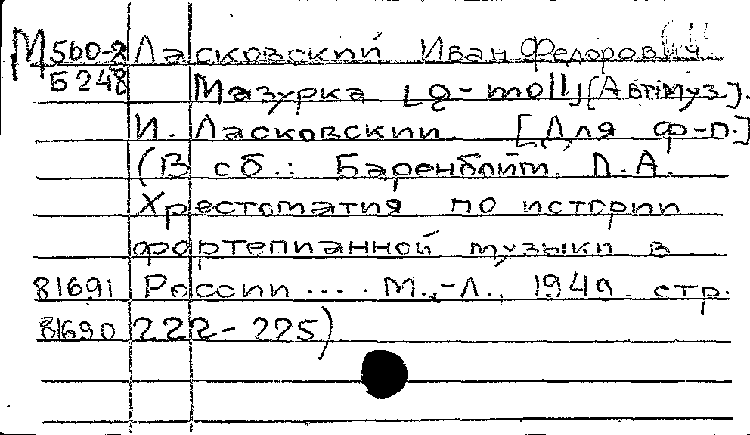 М560-8 Ласковский Иван Федорович
Б 248 Мазурка [g-moll] [Авт. муз.].
И. Ласковский. [Для ф-п.]
(В сб.: Баренбойм, Л.А.
Хрестоматия по истории
фортепианной музыки в
81691 России .... М.,-Л., 1949. стр.
81690 222-225)